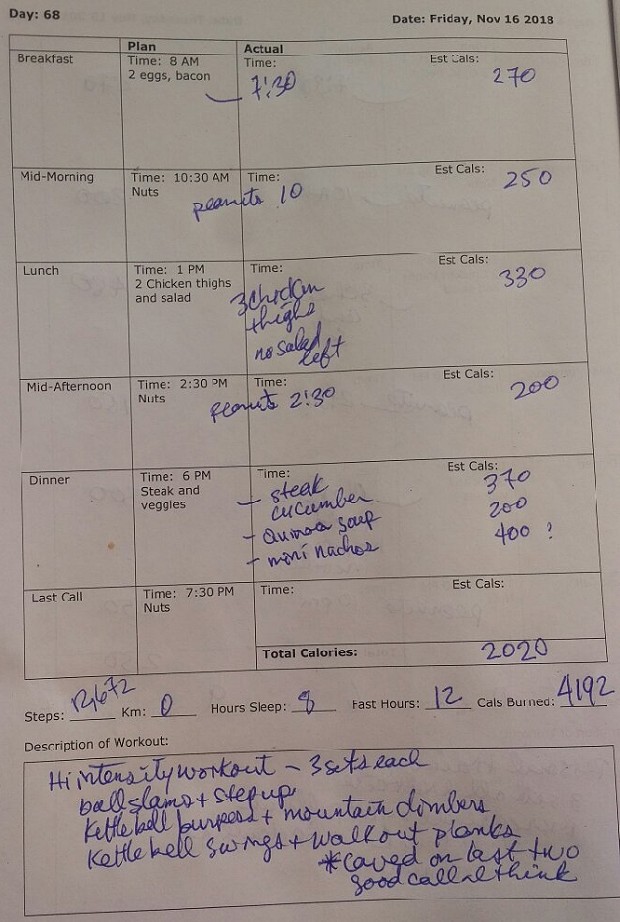 Day: 68
Date: Friday, Nov 16 2018
Plan
Actual
Breakfast
Time: 8 AM
2 eggs, bacon
Time:
7:30
Est Cals:
270
Mid-Morning
Time: 10:30 AM
Nuts
Time:
peanuts 10
Est Cals:
250
Lunch
Time: 1 PM
2 Chicken thighs
and salad
Time:
3 chicken
thighs
no salad
left
Est Cals:
330
Mid-Afternoon
Time: 2:30 PM
Nuts
Time:
peanuts 2:30
Est Cals:
200
Dinner
Time: 6 PM
Steak and
veggies
Time:
- steak
cucumber
- quinoa soup
- mini nachos
Est Cals:
370
200
400 ?
Last Call
Time: 7:30 PM
Nuts
Time:
Est Cals:
Total Calories:
2020
Steps: 12,672 Km: 0 Hours Sleep: 8 Fast Hours: 12 Cals Burned: 4192
Description of Workout:
Hi intensity workout - 3 sets each
ball slams + step up
Kettle bell burpees + mountain climbers
Kettle bell swings + walkout planks
*caved on last two
good call I think